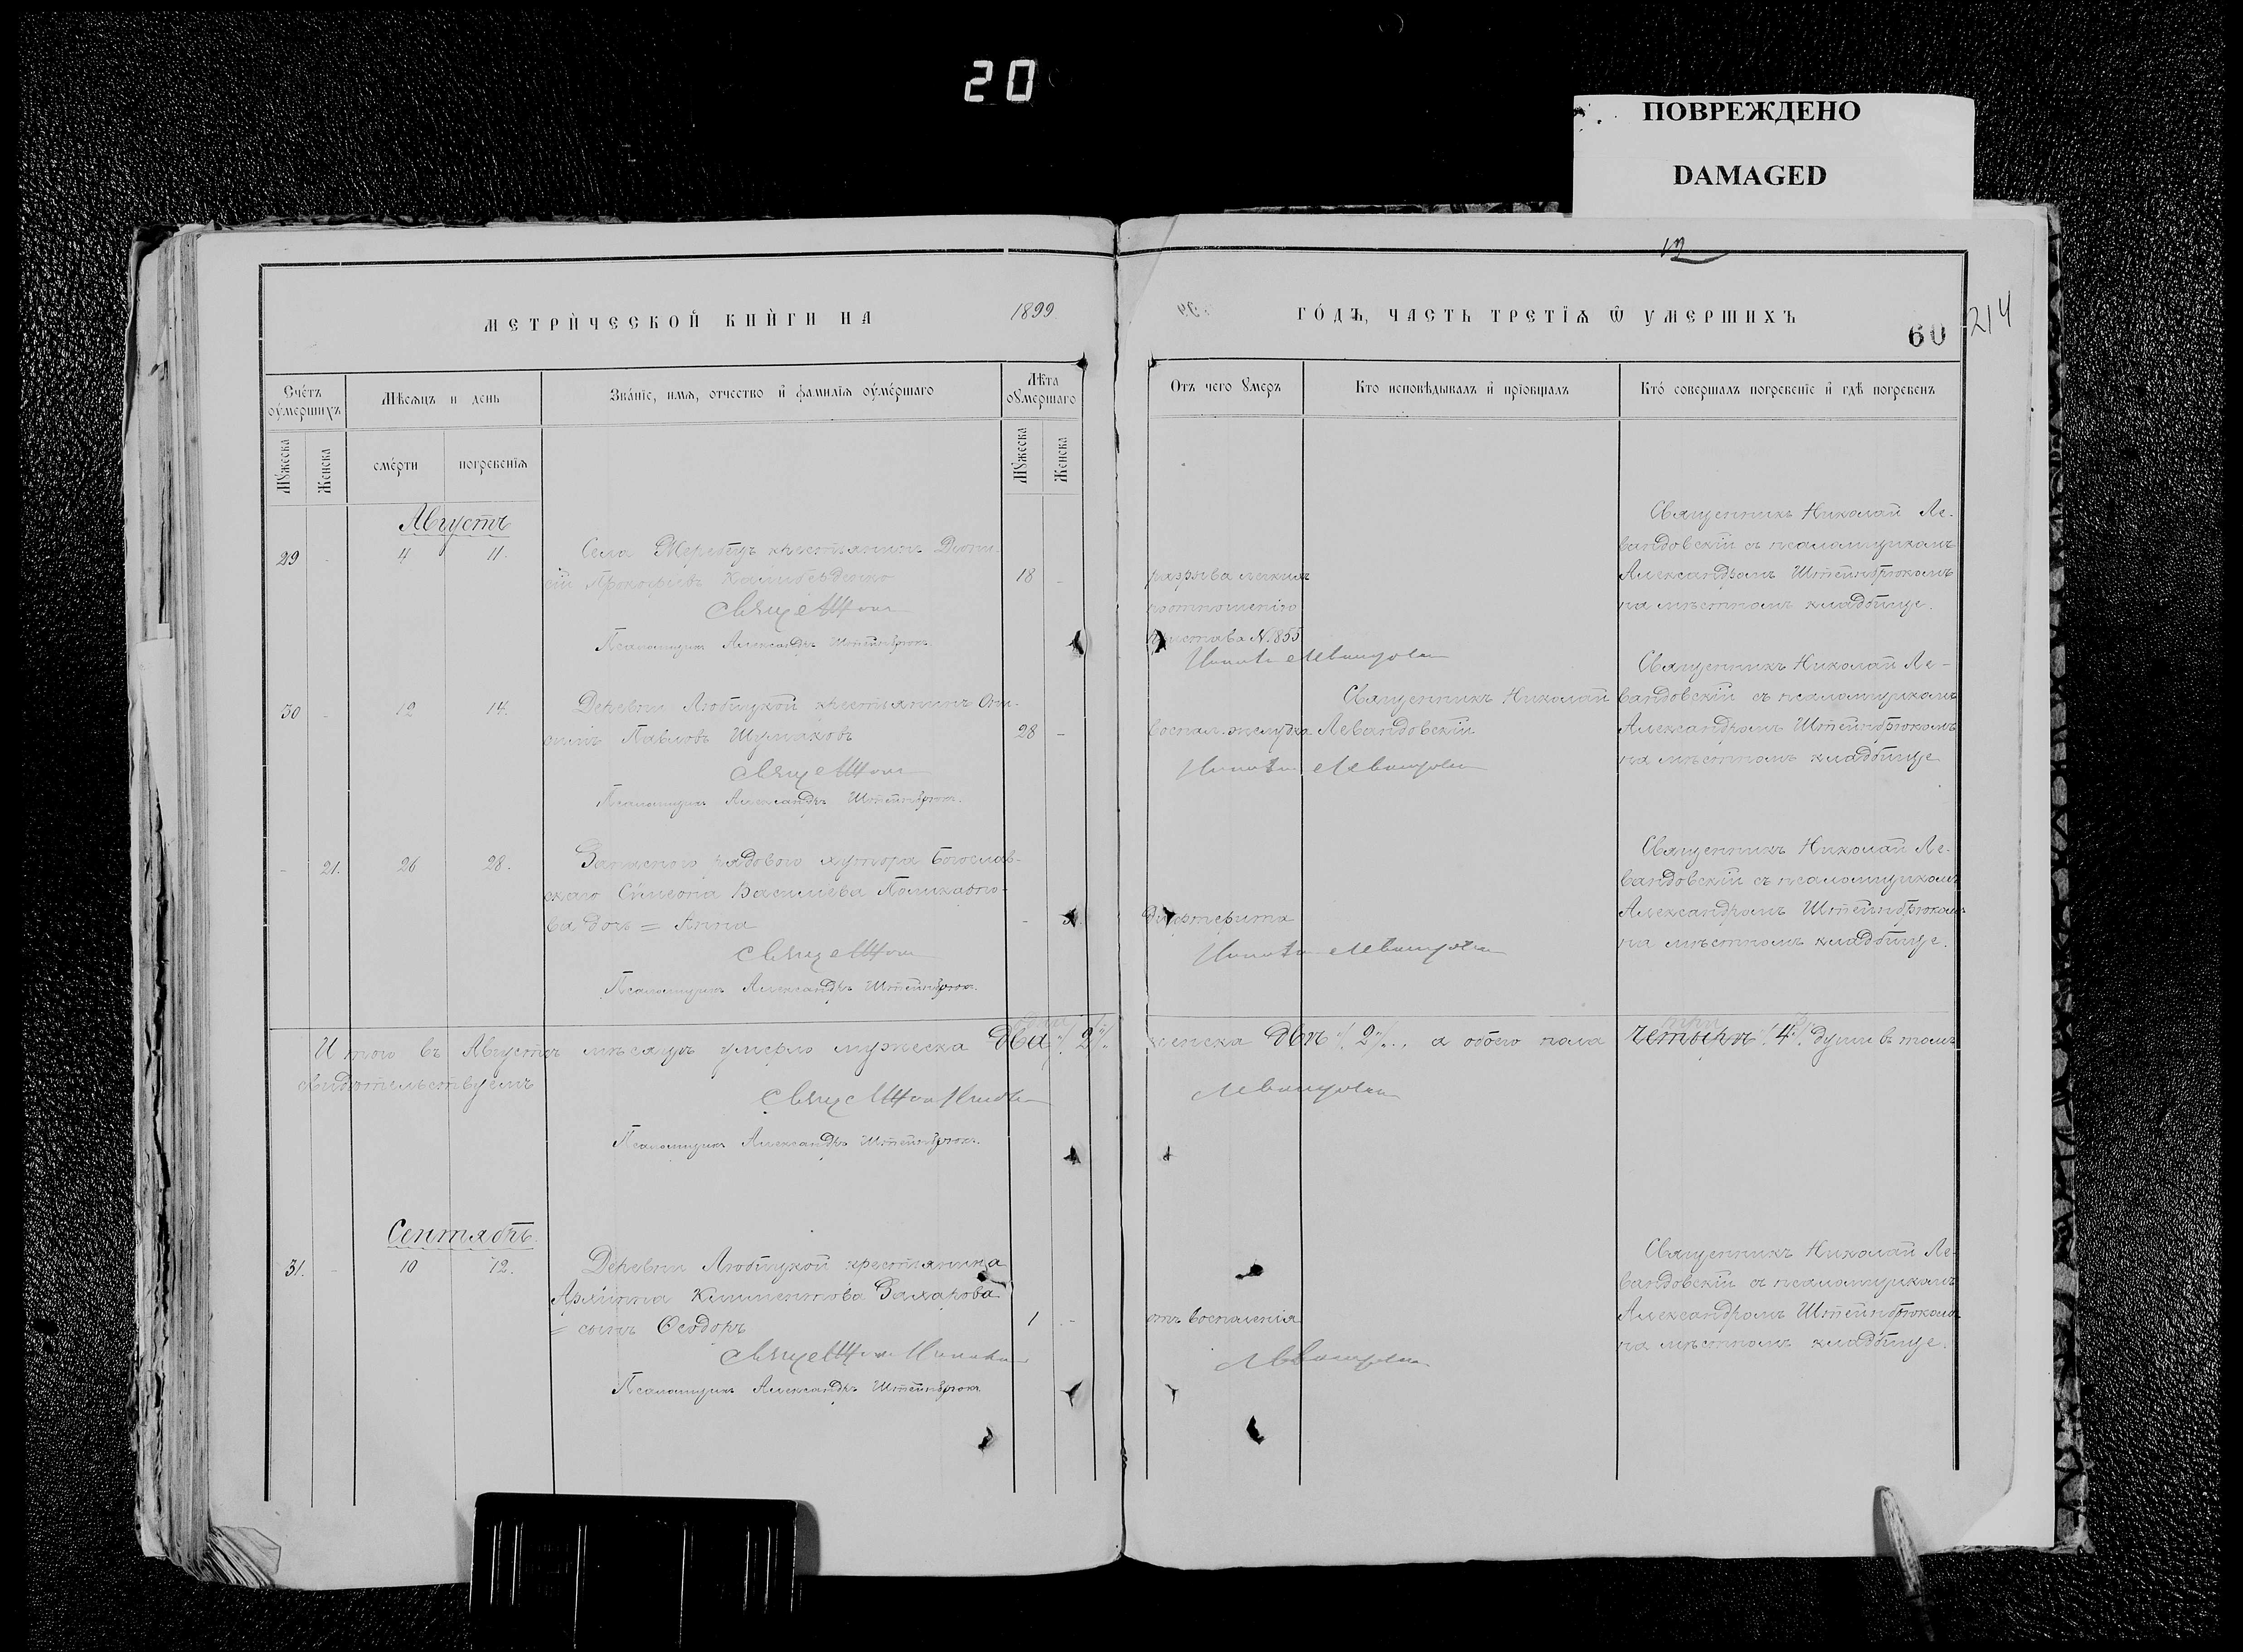 20
ПОВРЕЖДЕНО
DAMAGED
12
МЕТРИ́ЧЕСКОЙ КНИ́ГИ НА 1899
ГО́ДЪ, ЧАСТЬ ТРЕТІѦ Ѿ УМЕРШИХЪ
60
214
Сче́тъ оу҆ме́ршихъ
Мѣсѧцъ и день
Зва́нїе, имѧ, отчество и҆ фамилїѧ оу҆ме́ршаго
Лѣта оумершаго
Мꙋжеска
Женска
сме́рти
погребенїѧ
Мꙋжеска
Женска
Отъ чего ꙋмеръ
Кто исповѣдывалъ и҆ прїобщалъ
Кто́ совершалъ погребенїе и҆ гдѣ погребенъ
Августъ
29 - 4 11.
Села крестьянинъ Діони-
сій Прокофьевъ
18 -
Псаломщикъ Александръ Штейнбрюкъ.
разрыва легкихъ
по отношенію
пристава №. 855
Священникъ Николай Ле-
вандовскій съ псаломщикомъ
Александромъ Штейнбрюкомъ
на мѣстномъ кладбище.
30 - 12 14.
Деревни Любицкой крестьянинъ
Павловъ Шумаковъ
28 -
Псаломщикъ Александръ Штейнбрюкъ.
воспал. желудка
Священникъ Николай
Левандовскій
Священникъ Николай Ле-
вандовскій съ псаломщикомъ
Александромъ Штейнбрюкомъ
на мѣстномъ кладбище
- 21. 26 28.
Запаснаго рядового хутора Богослав-
скаго Сѵмеона Васильева
ва дочь = Анна
-
Псаломщикъ Александръ Штейнбрюкъ.
дифтерита
Священникъ Николай Ле-
вандовскій съ псаломщикомъ
Александромъ Штейнбрюкомъ
на мѣстномъ кладбище.
Итого въ Августѣ мѣсяцѣ умерло мужеска два 2 женска двѣ 2, а обоего пола четыре 4 души въ томъ
свидѣтельствуемъ
Псаломщикъ Александръ Штейнбрюкъ.
Сентябрь.
31. - 10 12.
Деревни Любицкой крестьянина
Климентова Захарова
= сынъ Ѳеодоръ
1 -
Псаломщикъ Александръ Штейнбрюкъ
отъ воспаленія
Священникъ Николай Ле-
вандовскій съ псаломщикомъ
Александромъ Штейнбрюкомъ
на мѣстномъ кладбище.